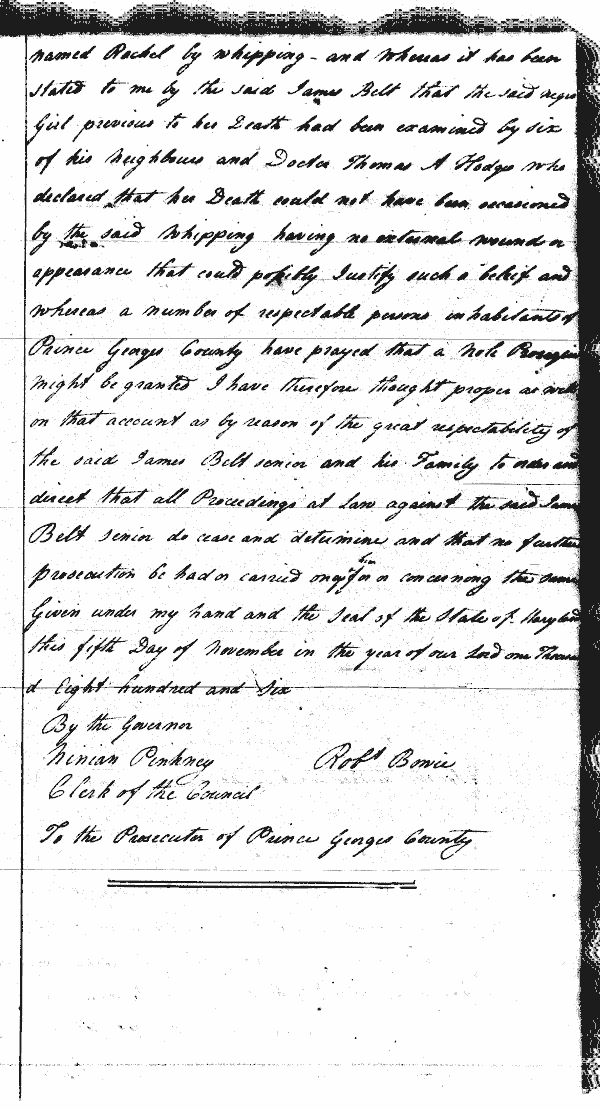 named Rachel by whipping - and whereas it has been
stated to me by the said James Belt that the said negro
Girl previous to her Death had been examined by six
of his neighbours and Doctor Thomas A Hodges who
declared that her Death could not have been occasioned
by the said whipping having no external wound or
appearance that could possibly Justify such a belief and
whereas a number of respectable persons inhabitants of
Prince Georges County have prayed that a Nole Prosequi
might be granted I have therefore thought proper as well
on that account as by reason of the great respectability of
the said James Belt senior and his Family to order and
direct that all Proceedings at Law against the said James
Belt senior do cease and determine and that no further
prosecution be had or carried on agt him for or concerning the same
Given under my hand and the Seal of the State of Maryland
this fifth Day of November in the year of our Lord one Thousan
d Eight hundred and Six
By the Governor
Ninian Pinkney Robt Bowie
Clerk of the Council
To the Prosecutor of Prince Georges County